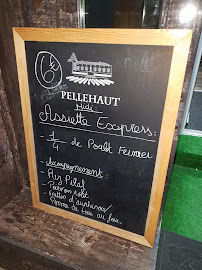 PELLEHAUT
Midi
Assiette Express:
- 1/4 de Poulet Fermier
- Accompagnement:
- Riz Pilaf
- Poivron rôti
- Gratin d'aubergine
- Pomme de terre au four